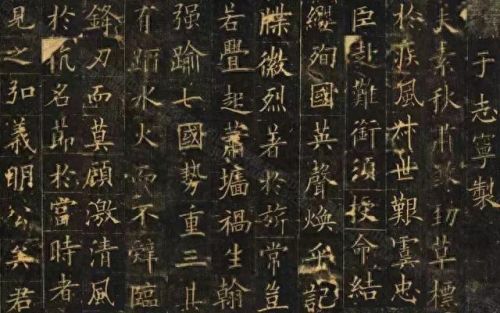 于志寧製
夫素秋肅煞勁草標
於疾風叔世艱虞忠
臣赴難銜須授命結
纓殉國英聲煥乎記
牒徽烈著於旂常豈
若疊起蕭墻禍生翰
强踰七國勢重三其
有蹈水火而不辭臨
鋒刃而莫顧激清風
於抗名節於當時者
見之弘義明公矣君